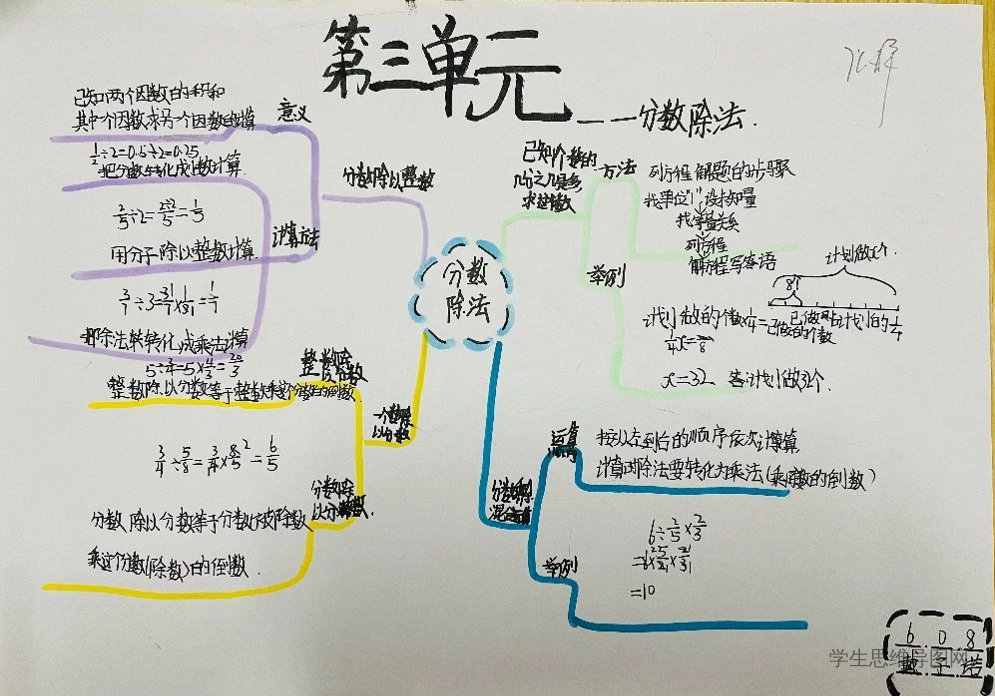 第三单元
——分数除法
分数
除法
分数除以整数
意义
已知两个因数的积和
其中一个因数求另一个因数的运算
1/2÷2=0.5÷2=0.25
把分数转化成小数计算
计算方法
2/5÷2=2÷2/5=1/5
用分子除以整数计算
3/7÷3=3/7×1/3=1/7
把除法转化成乘法计算
一个数除
以分数
整数除
以分数
5÷3/4=5×4/3=20/3
整数除以分数等于整数乘分数的倒数
3/4÷5/8=3/4×8/5=6/5
分数除
以分数
分数除以分数等于分数
乘这个分数(除数)的倒数
已知个数的
几分之几是多少,
求这个数
方法
列方程解题的步骤
找单位"1",设未知量
找等量关系
列方程
解方程写答语
举例
计划做x个
8个
已做的占计划的1/4
计划做的个数×1/4=已做的个数
1/4x=8
x=32 答计划做32个.
分数
混合
运算
顺序
按从左到右的顺序依次计算
计算时除法要转化为乘法(乘除数的倒数)
举例
6÷2/5×2/3
=6×5/2×2/3
=10
6 0 8
学生思维导图网